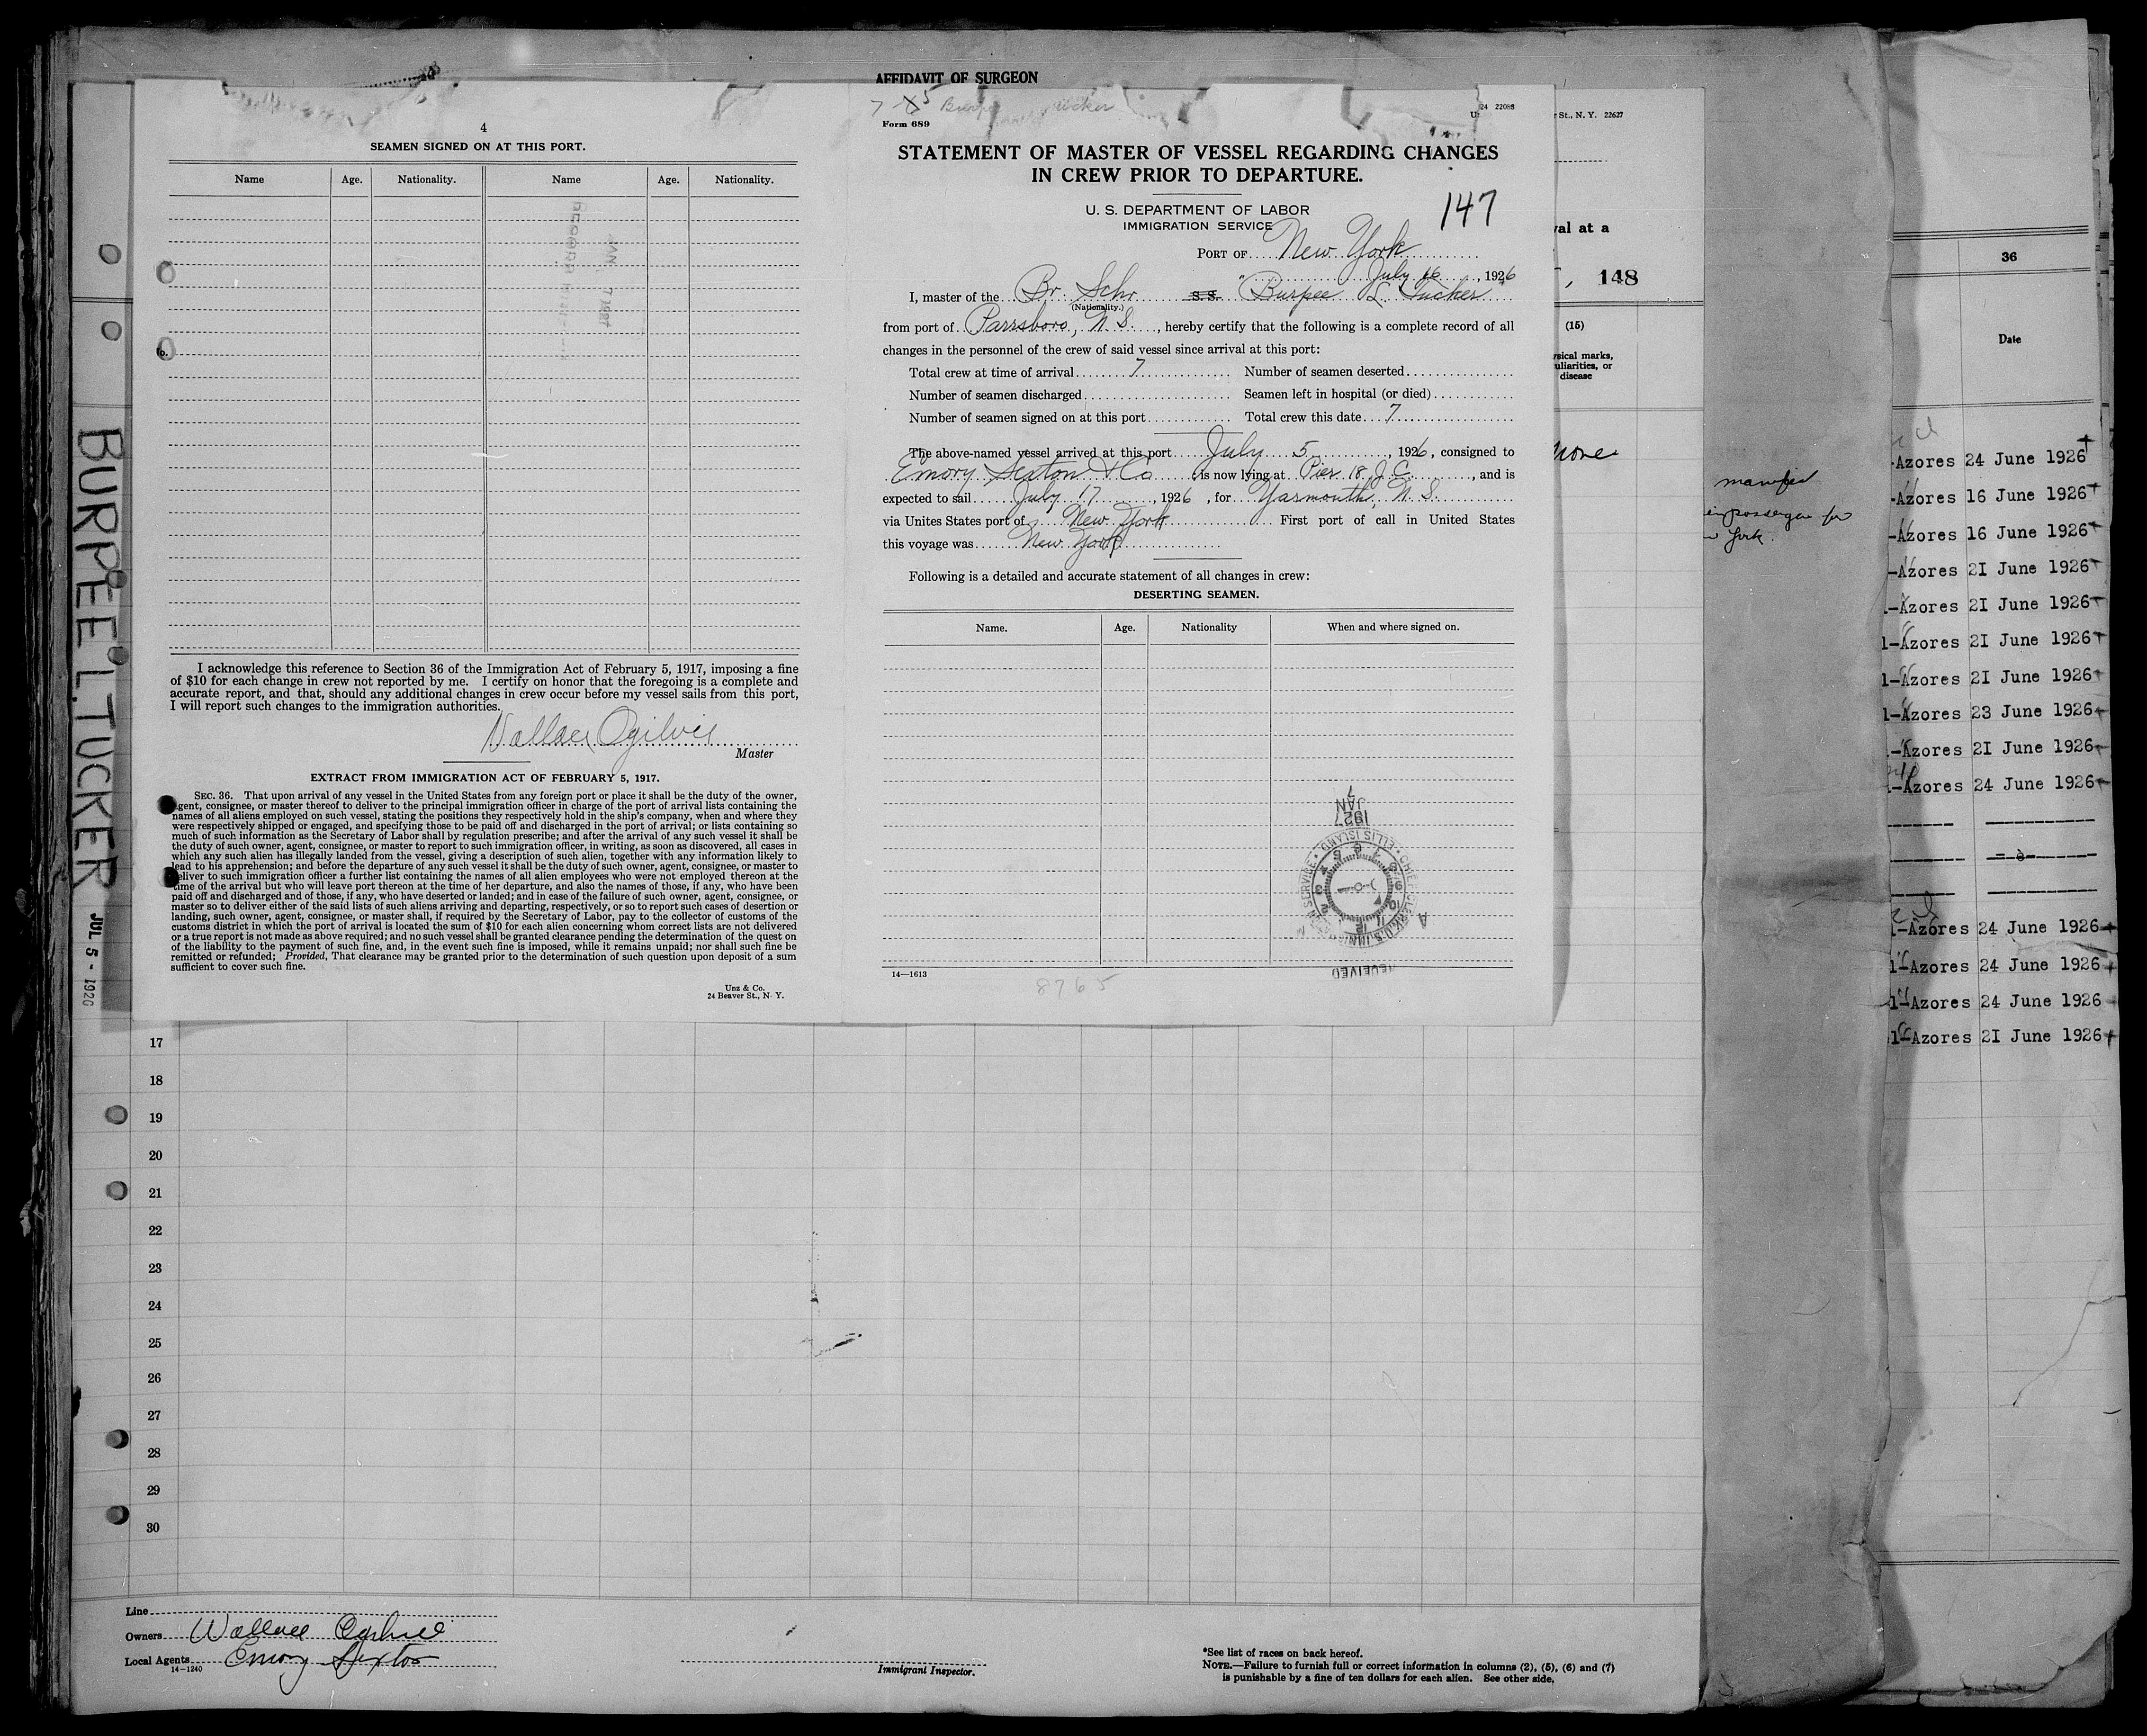 AFFIDAVIT OF SURGEON
4
SEAMEN SIGNED ON AT THIS PORT.
Name Age. Nationality. Name Age. Nationality.
I acknowledge this reference to Section 36 of the Immigration Act of February 5, 1917, imposing a fine
of $10 for each change in crew not reported by me. I certify on honor that the foregoing is a complete and
accurate report, and that, should any additional changes in crew occur before my vessel sails from this port,
I will report such changes to the immigration authorities.
Wallace Ogilvie
Master
EXTRACT FROM IMMIGRATION ACT OF FEBRUARY 5, 1917.
SEC. 36. That upon arrival of any vessel in the United States from any foreign port or place it shall be the duty of the owner,
agent, consignee, or master thereof to deliver to the principal immigration officer in charge of the port of arrival lists containing the
names of all aliens employed on such vessel, stating the positions they respectively hold in the ship's company, when and where they
were respectively shipped or engaged, and specifying those to be paid off and discharged in the port of arrival; or lists containing so
much of such information as the Secretary of Labor shall by regulation prescribe; and after the arrival of any such vessel it shall be
the duty of such owner, agent, consignee, or master to report to such immigration officer, in writing, as soon as discovered, all cases in
which any such alien has illegally landed from the vessel, giving a description of such alien, together with any information likely to
lead to his apprehension; and before the departure of any such vessel it shall be the duty of such owner, agent, consignee, or master to
deliver to such immigration officer a further list containing the names of all alien employees who were not employed thereon at the
time of the arrival but who will leave port thereon at the time of her departure, and also the names of those, if any, who have been
paid off and discharged and of those, if any, who have deserted or landed; and in case of the failure of such owner, agent, consignee, or
master so to deliver either of the said lists of such aliens arriving and departing, respectively, or so to report such cases of desertion or
landing, such owner, agent, consignee, or master shall, if required by the Secretary of Labor, pay to the collector of customs of the
customs district in which the port of arrival is located the sum of $10 for each alien concerning whom correct lists are not delivered
or a true report is not made as above required; and no such vessel shall be granted clearance pending the determination of the quest on
of the liability to the payment of such fine, and, in the event such fine is imposed, while it remains unpaid; nor shall such fine be
remitted or refunded; Provided, That clearance may be granted prior to the determination of such question upon deposit of a sum
sufficient to cover such fine.
Unz & Co.
24 Beaver St., N. Y.
BURPEE L. TUCKER JUL 5 - 1926
Form 689
24 22088
STATEMENT OF MASTER OF VESSEL REGARDING CHANGES
IN CREW PRIOR TO DEPARTURE.
147
U. S. DEPARTMENT OF LABOR
IMMIGRATION SERVICE
PORT OF New York
July 16, 1926
I, master of the Br. Schr S.S. "Burpee L. Tucker"
(Nationality.)
from port of Parrsboro, N. S., hereby certify that the following is a complete record of all
changes in the personnel of the crew of said vessel since arrival at this port:
Total crew at time of arrival 7 Number of seamen deserted
Number of seamen discharged Seamen left in hospital (or died)
Number of seamen signed on at this port Total crew this date 7
The above-named vessel arrived at this port July 5, 1926, consigned to
Emory Sexton & Co is now lying at Pier 18 J. C., and is
expected to sail July 17, 1926, for Yarmouth, N. S.
via Unites States port of New York First port of call in United States
this voyage was New York
Following is a detailed and accurate statement of all changes in crew:
DESERTING SEAMEN.
Name. Age. Nationality When and where signed on.
JAN 7 1927
ELLIS ISLAND
RECEIVED
14—1613
8765
St., N. Y. 22627
val at a
, 148
(15)
sical marks,
uliarities, or
disease
None
36
Date
-Azores 24 June 1926
-Azores 16 June 1926
-Azores 16 June 1926
-Azores 21 June 1926
-Azores 21 June 1926
1-Azores 21 June 1926
1-Azores 21 June 1926
1-Azores 23 June 1926
-Azores 21 June 1926
-Azores 24 June 1926
-Azores 24 June 1926
1-Azores 24 June 1926
1-Azores 24 June 1926
1-Azores 21 June 1926
17
18
19
20
21
22
23
24
25
26
27
28
29
30
Line
Owners Wallace Ogilvie
Local Agents Emory Sexton
14-1240
Immigrant Inspector.
*See list of races on back hereof.
NOTE.—Failure to furnish full or correct information in columns (2), (5), (6) and (7)
is punishable by a fine of ten dollars for each alien. See other side.